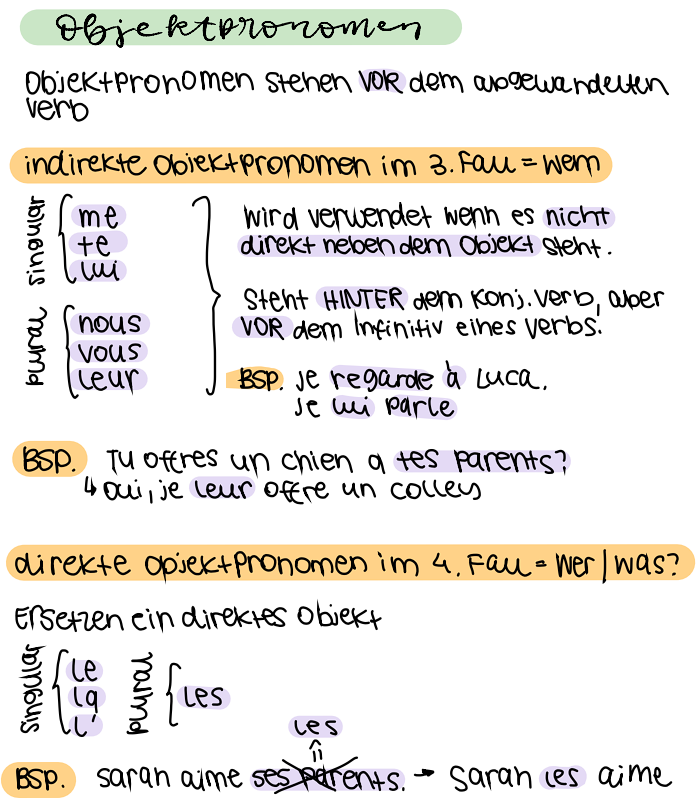 Objektpronomen
Objektpronomen stehen VOR dem abgewandelten
verb
indirekte Objektpronomen im 3. Fall = wem
singular
me
te
lui
plural
nous
vous
leur
wird verwendet wenn es nicht
direkt neben dem Objekt steht.
Steht HINTER dem Konj. Verb, aber
VOR dem Infinitiv eines Verbs.
BSP. je regarde à Luca.
je lui parle
BSP. Tu offres un chien a tes parents?
↳ Oui, je leur offre un colleys
direkte Objektpronomen im 4. Fall = wer | was?
Ersetzen ein direktes Objekt
singular
le
la
l'
plural
les
les
=
BSP. Sarah aime ses parents. → Sarah les aime